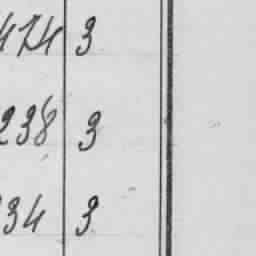 474 3
238 3
34 3